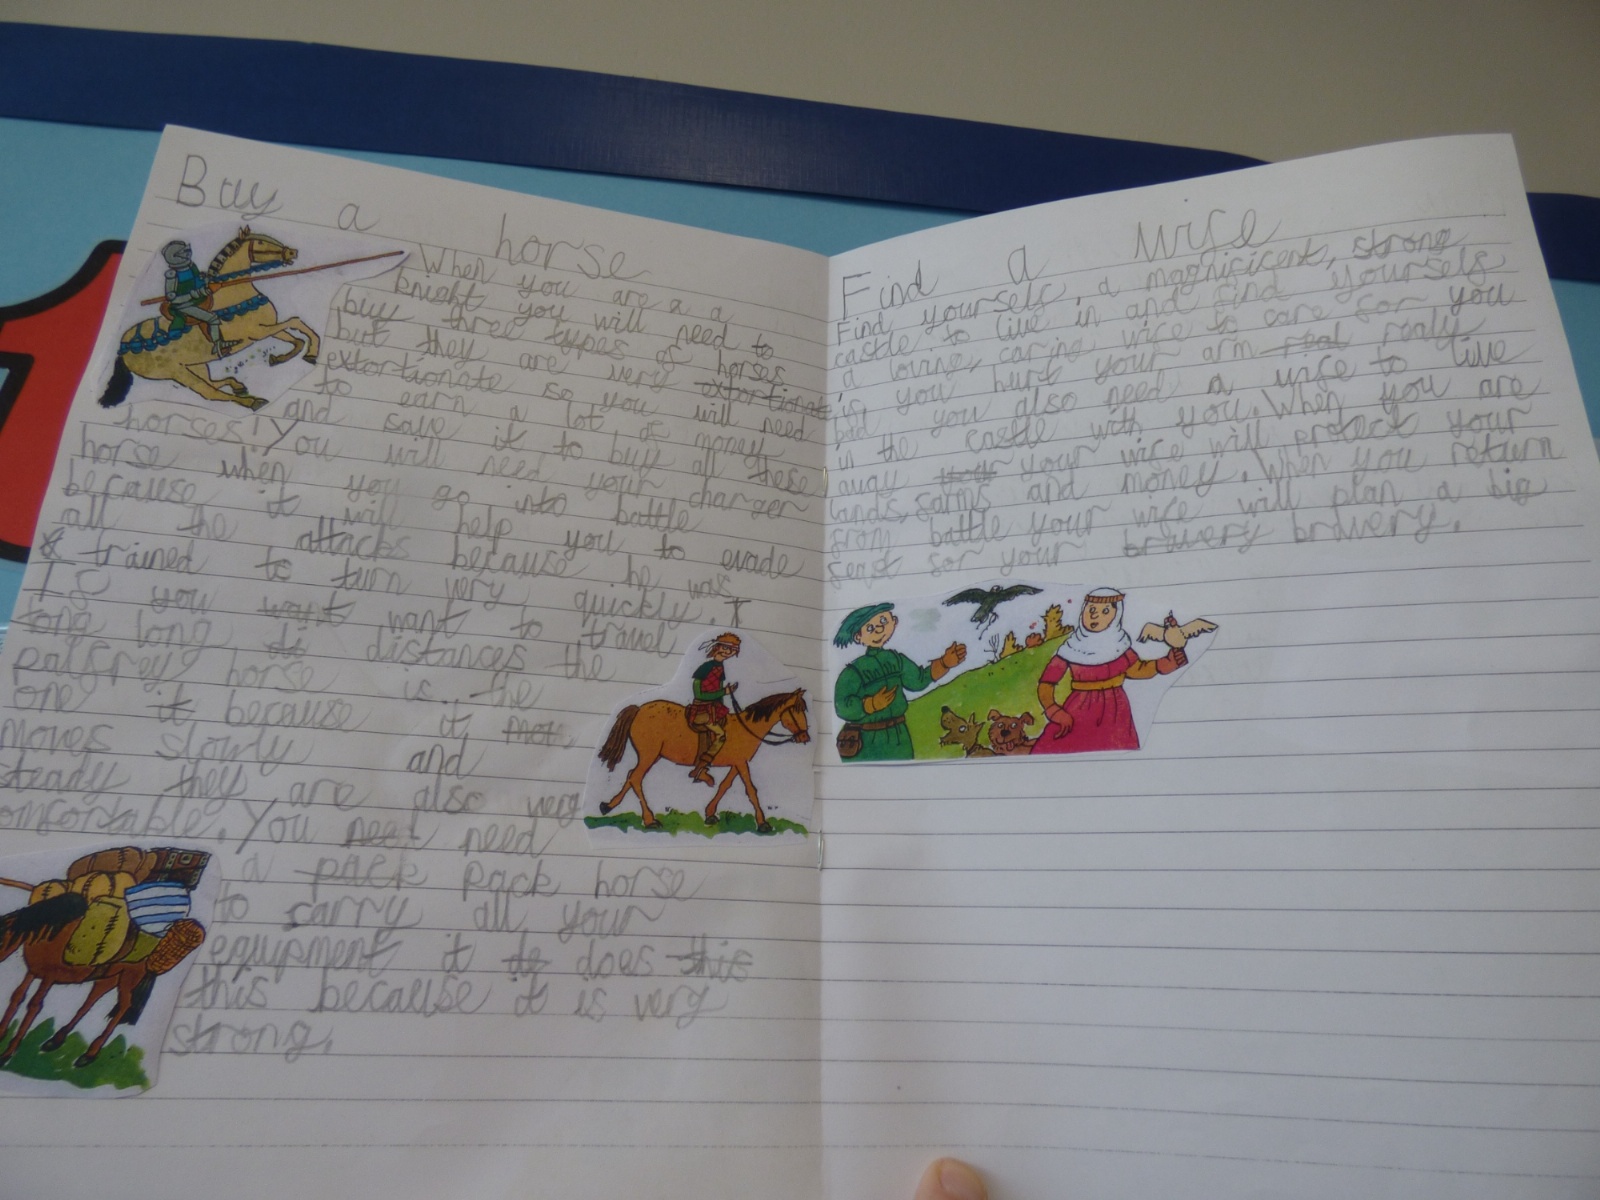 Buy a horse
When you are a a
knight you will need to
buy three types of horses
but they are very exportionate
extortionate so you will need
to earn a lot of money
and save it to buy all these
horses! You will need your charger
horse when you go into battle
because it will help you to evade
all the attacks because he was
trained to turn very quickly. I
If you want want to travel
long long distances the
palfrey horse is the
one it because it mov
moves slowly and
steady they are also very
omfortable. You need need
a pack pack horse
to carry all your
equipment it is does this
this because it is very
strong.
Find a wife
Find yourself, a magnificent, strong
castle to live in and find yourself
a loving, caring wife to care for you
if you hurt your arm real really
bad you also need a wife to live
in the castle with you. When you are
away your your wife will protect your
lands, farms and money. When you return
from battle your wife will plan a big
feast for your bravery bravery.